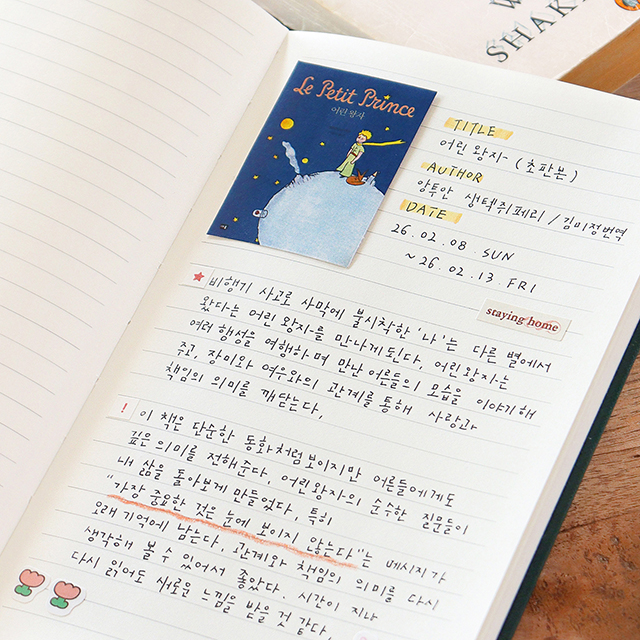 W
SHAK
Le Petit Prince
어린 왕자
TITLE
어린 왕자 (초판본)
AUTHOR
앙투안 생텍쥐페리 / 김미정번역
DATE
26.02.08 SUN
~26.02.13 FRI
staying home
비행기 사고로 사막에 불시착한 '나'는 다른 별에서
왔다는 어린 왕자를 만나게 된다. 어린왕자는
여러 행성을 여행하며 만난 어른들의 모습을 이야기해
주고, 장미와 여우와의 관계를 통해 사랑과
책임의 의미를 깨닫는다.
! 이 책은 단순한 동화처럼 보이지만 어른들에게도
깊은 의미를 전해준다. 어린왕자의 순수한 질문들이
내 삶을 돌아보게 만들었다. 특히
"가장 중요한 것은 눈에 보이지 않는다"는 메시지가
오래 기억에 남는다. 관계와 책임의 의미를 다시
생각해 볼 수 있어서 좋았다. 시간이 지나
다시 읽어도 새로운 느낌을 받을 것 같다.